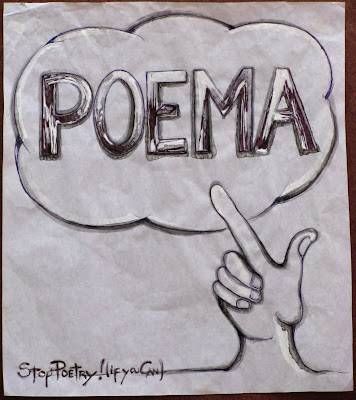 POEMA
Stop Poetry! (if you Can)